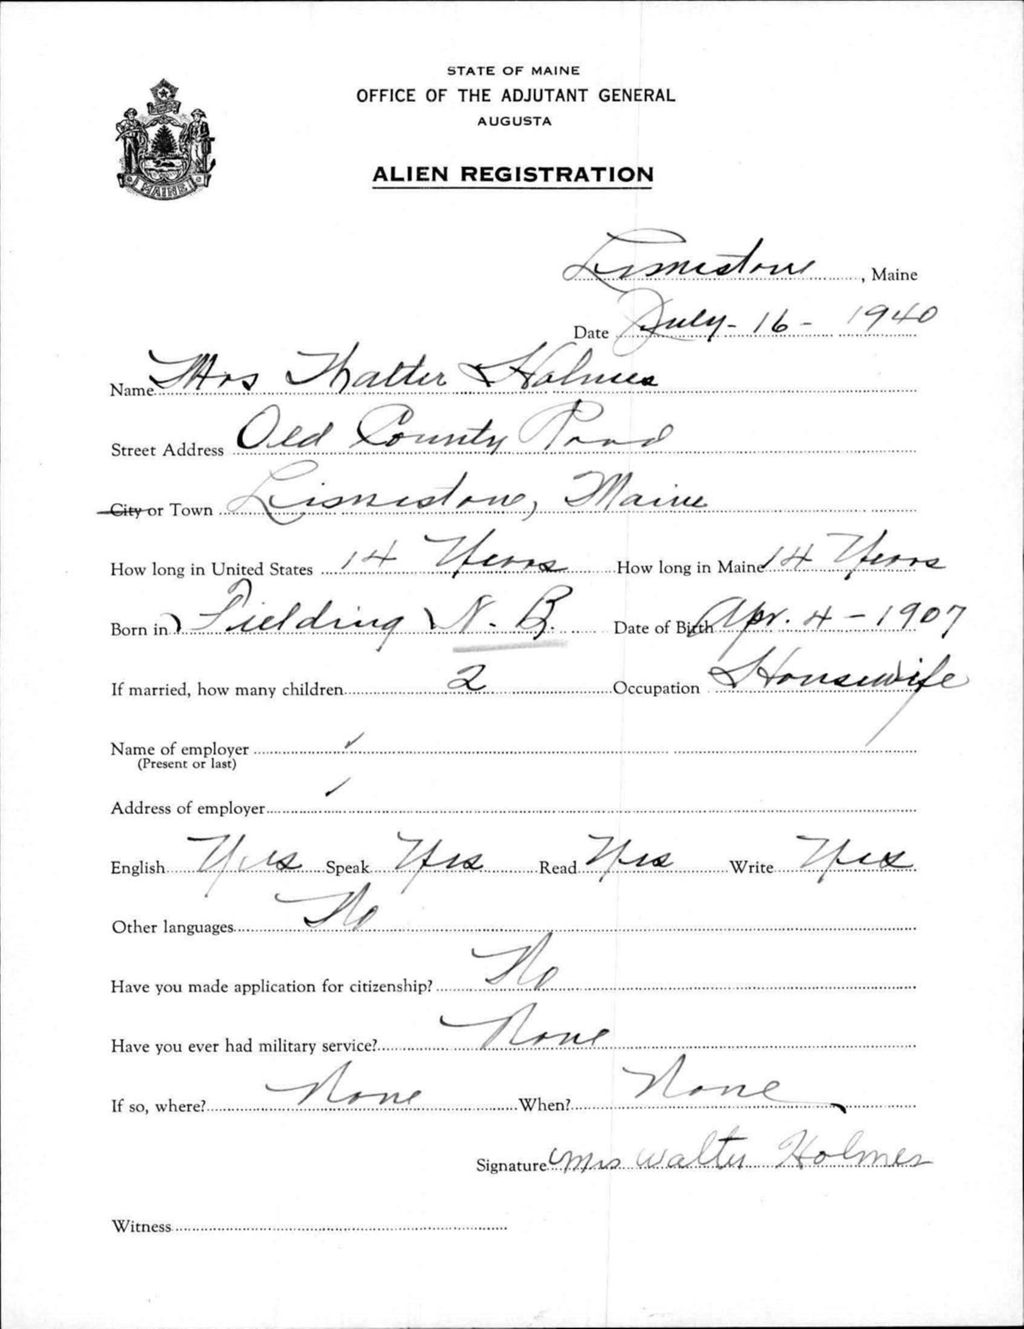 STATE OF MAINE
OFFICE OF THE ADJUTANT GENERAL
AUGUSTA
ALIEN REGISTRATION
MAINE
Limestone, Maine
Date July - 16 - 1940
Name Mrs Walter Holmes
Street Address Old County Road
City or Town Limestone, Maine
How long in United States 14 Years How long in Maine 14 Years
Born in Fielding N. B. Date of Birth Apr. 4 - 1907
If married, how many children 2 Occupation Housewife
Name of employer ✓
(Present or last)
Address of employer ✓
English Yes Speak Yes Read Yes Write Yes
Other languages No
Have you made application for citizenship? No
Have you ever had military service? None
If so, where? None When? None
Signature Mrs Walter Holmes
Witness